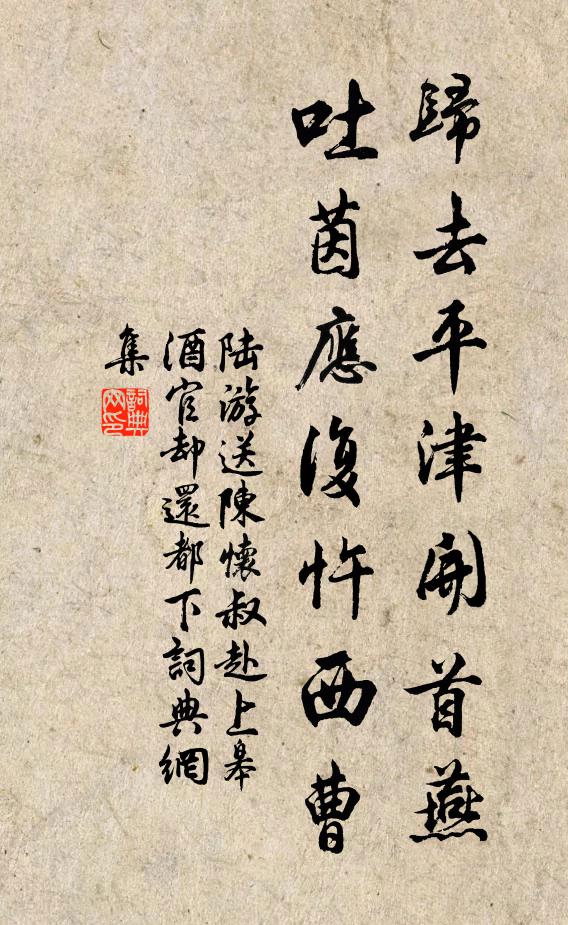 歸去平津開首燕
吐茵應復忤西曹
陸游送陳懷叔赴上皋
酒官却還都下詞典網
集
詞典網印